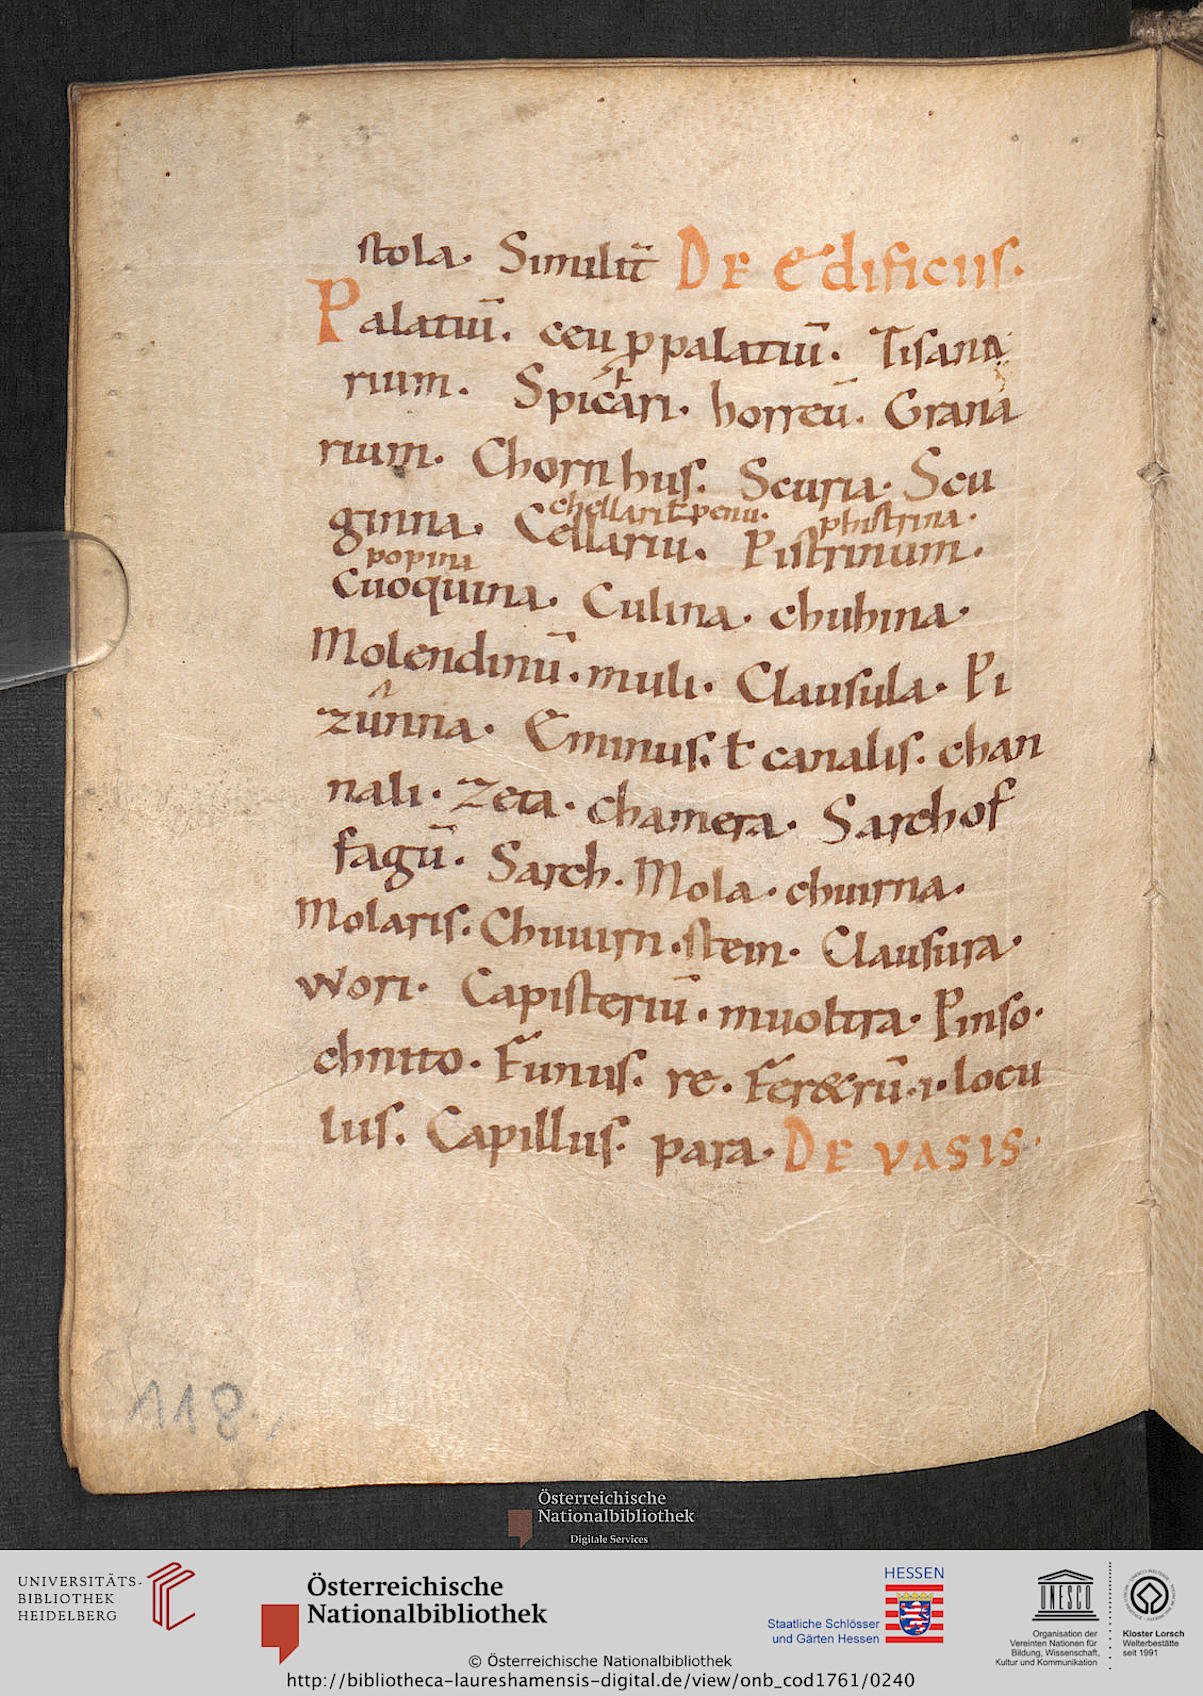 stola. Similit̄ DE Edificiis.
Palatiū. ceu ꝓpalatiū. Tisana
rium. Spicari. horreū. Grana
rium. Chornhus. Scuria. Scu
ginna. Cellariu. Pistrinum.
chellari ł penu. phistrina.
popina
Cuoquina. Culina. chuhina.
Molendinū. muli. Clausula. Pi
zûnna. Eminus. ł canalis. chan
nali. Zeta. chamera. Sarchof
fagū. Sarch. Mola. chuirna.
Molaris. Chuuirn.stein. Clausura.
wori. Capisteriū. muoltra. Pinso.
chnito. Funus. re. Fer&rū.i. locu
lus. Capillus. para. DE VASIS.
118.
Österreichische
Nationalbibliothek
Digitale Services
UNIVERSITÄTS-
BIBLIOTHEK
HEIDELBERG
Österreichische
Nationalbibliothek
HESSEN
Staatliche Schlösser
und Gärten Hessen
UNESCO
Organisation der
Vereinten Nationen für
Bildung, Wissenschaft,
Kultur und Kommunikation
Kloster Lorsch
Welterbestätte
seit 1991
© Österreichische Nationalbibliothek
http://bibliotheca-laureshamensis-digital.de/view/onb_cod1761/0240